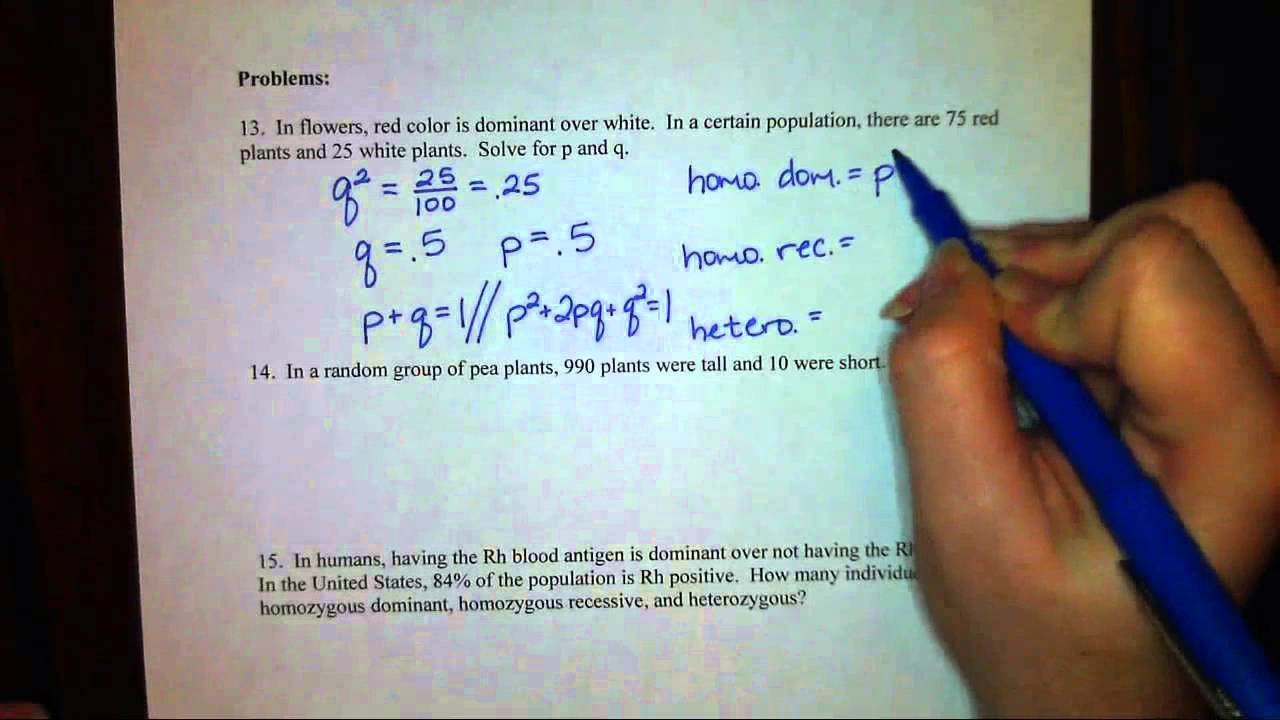 Problems:
13. In flowers, red color is dominant over white. In a certain population, there are 75 red
plants and 25 white plants. Solve for p and q.
q² = 25/100 = .25
homo. dom. = p
q = .5 p = .5
homo. rec. =
p + q = 1 // p² + 2pq + q² = 1
hetero. =
14. In a random group of pea plants, 990 plants were tall and 10 were short.
15. In humans, having the Rh blood antigen is dominant over not having the
In the United States, 84% of the population is Rh positive. How many
homozygous dominant, homozygous recessive, and heterozygous?